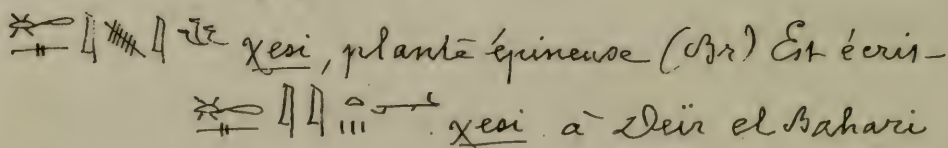 χesi, plante épineuse (Br) Est écris-
χesi à Deïr el Bahari